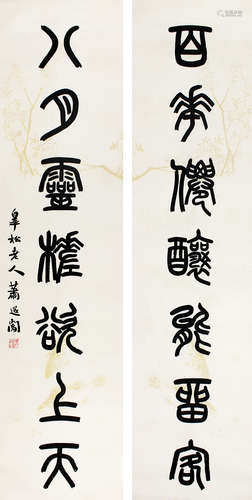 百華僊釀能留客
八月靈槎欲上天
皋松老人蕭退闇